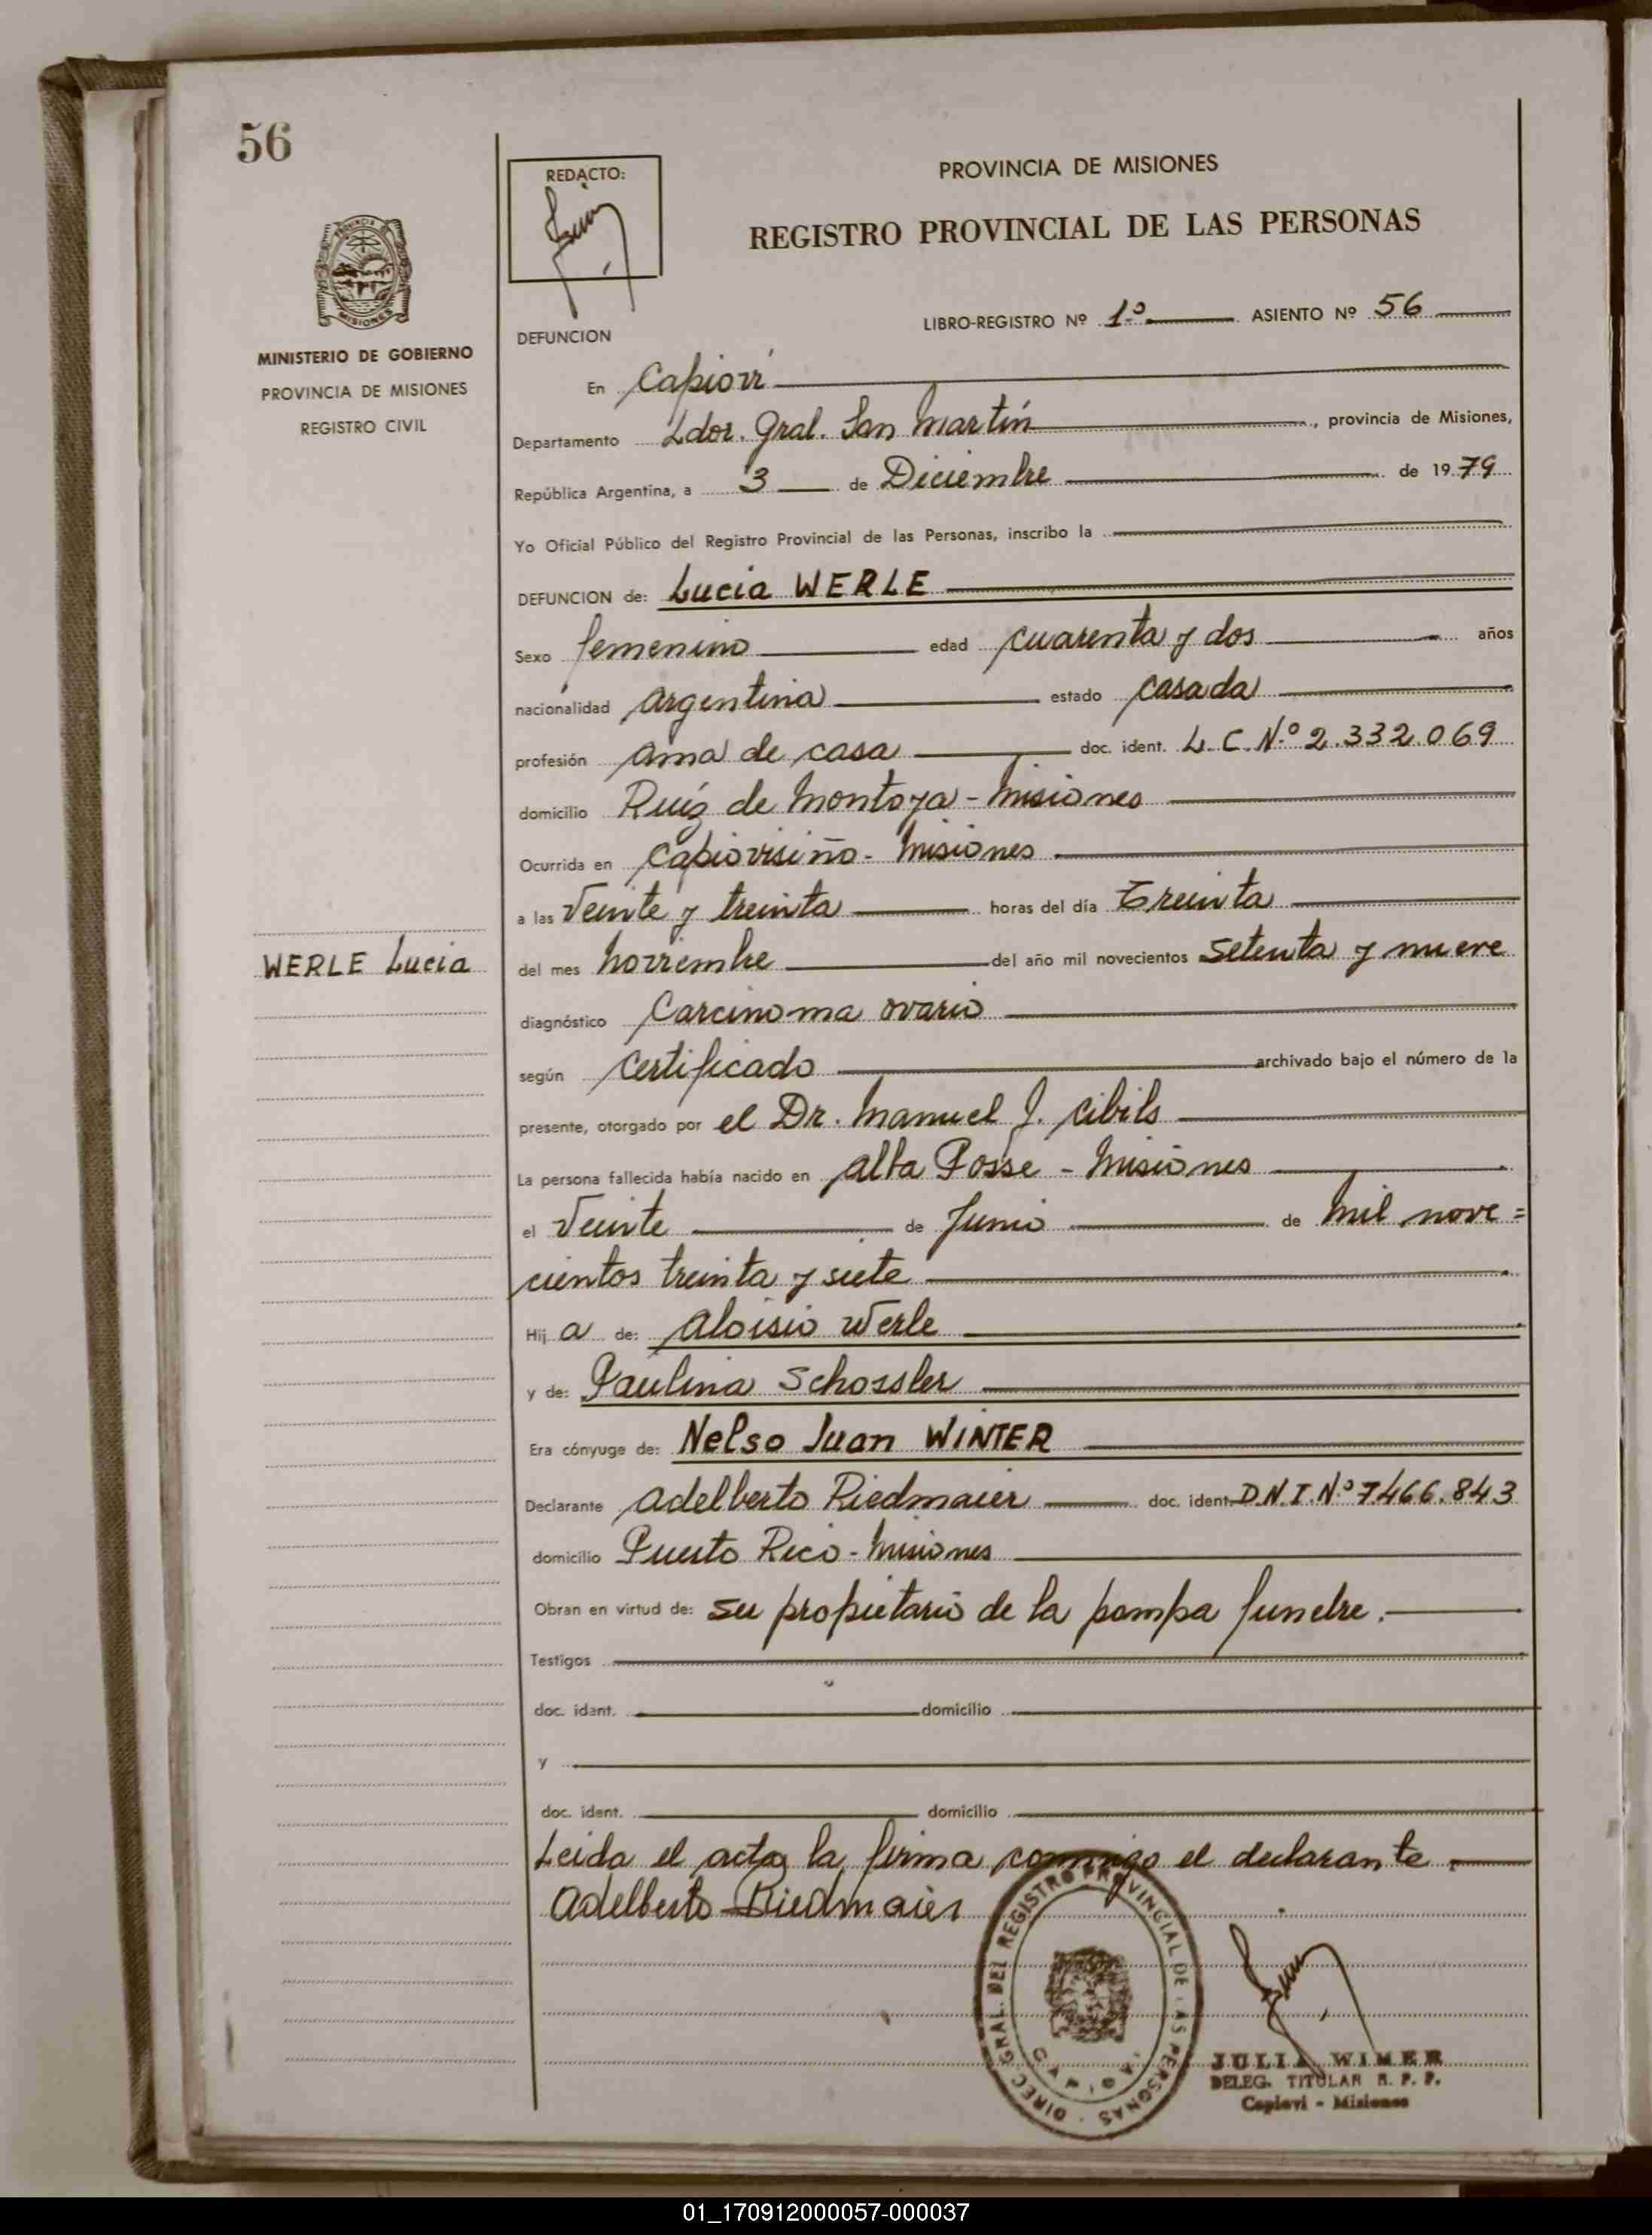 56
REDACTO:
PROVINCIA DE MISIONES
REGISTRO PROVINCIAL DE LAS PERSONAS
PROVINCIA
MISIONES
MINISTERIO DE GOBIERNO
PROVINCIA DE MISIONES
REGISTRO CIVIL
LIBRO-REGISTRO Nº 1º ASIENTO Nº 56
DEFUNCION
En Capioví
Departamento Ldor. Gral. San Martín, provincia de Misiones,
República Argentina, a 3 de Diciembre de 1979
Yo Oficial Público del Registro Provincial de las Personas, inscribo la
DEFUNCION de: Lucia WERLE
Sexo femenino edad cuarenta y dos años
nacionalidad argentina estado casada
profesión ama de casa doc. ident. L.C.N.º 2.332.069
domicilio Ruíz de Montoya - Misiones
Ocurrida en Capiovisiño - Misiones
a las Veinte y treinta horas del día Treinta
WERLE Lucia
del mes Noviembre del año mil novecientos setenta y nueve
diagnóstico Carcinoma ovario
según Certificado archivado bajo el número de la
presente, otorgado por el Dr. Manuel J. Cibils
La persona fallecida había nacido en Alba Posse - Misiones
el Veinte de Junio de Mil nove=
cientos treinta y siete
Hij a de: Aloisio Werle
y de: Paulina Schossler
Era cónyuge de: Nelso Juan WINTER
Declarante Adelberto Riedmaier doc. ident. D.N.I.Nº 7.466.843
domicilio Puerto Rico - Misiones
Obran en virtud de: su propietario de la pompa funebre.
Testigos
doc. ident. domicilio
y
doc. ident. domicilio
Leida el acta, la firma conmigo el declarante
Adelberto Riedmaier
DIREC. GRAL. DEL REGISTRO PROVINCIAL DE LAS PERSONAS
CAPIOVI
JULIA WIMER
DELEG. TITULAR R. P. P.
Capiovi - Misiones
01_170912000057-000037